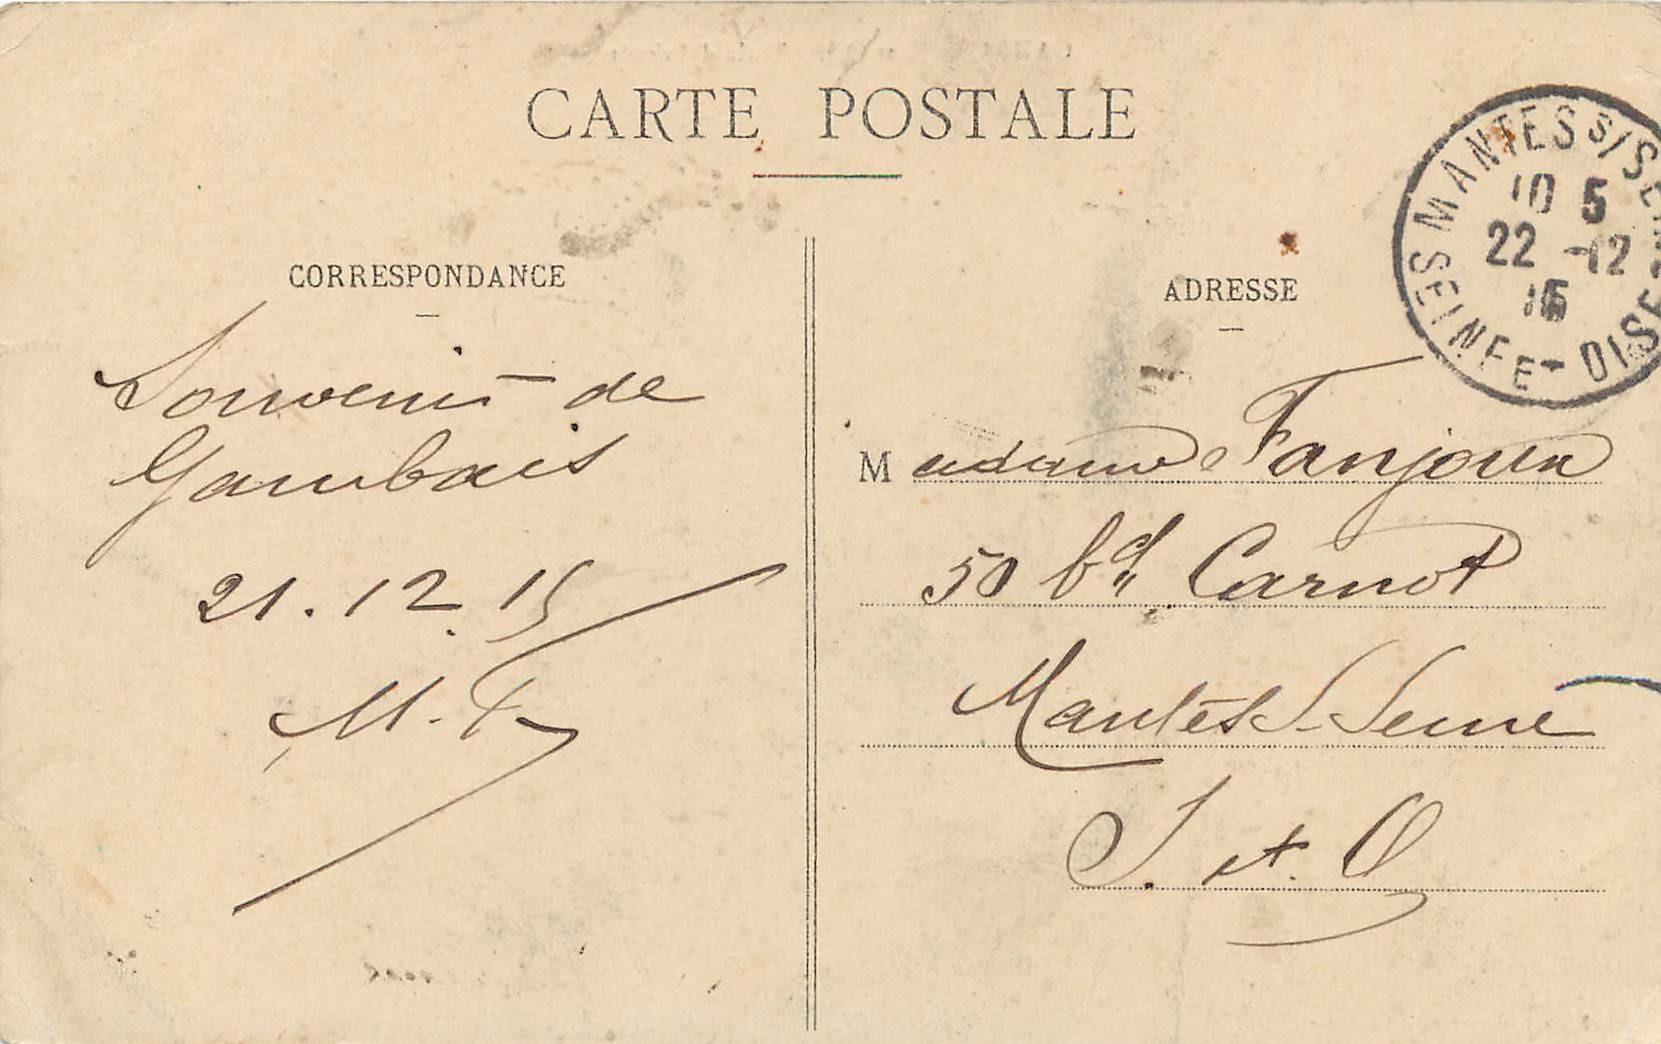 CARTE POSTALE
CORRESPONDANCE
Souvenir de
Gambais
21.12.15
M. F
ADRESSE
MANTES S/SEINE
10 5
22 -12
15
SEINE-ET-OISE
Madame Fanjoux
50 bd Carnot
Mantes S. Seine
S. et. O